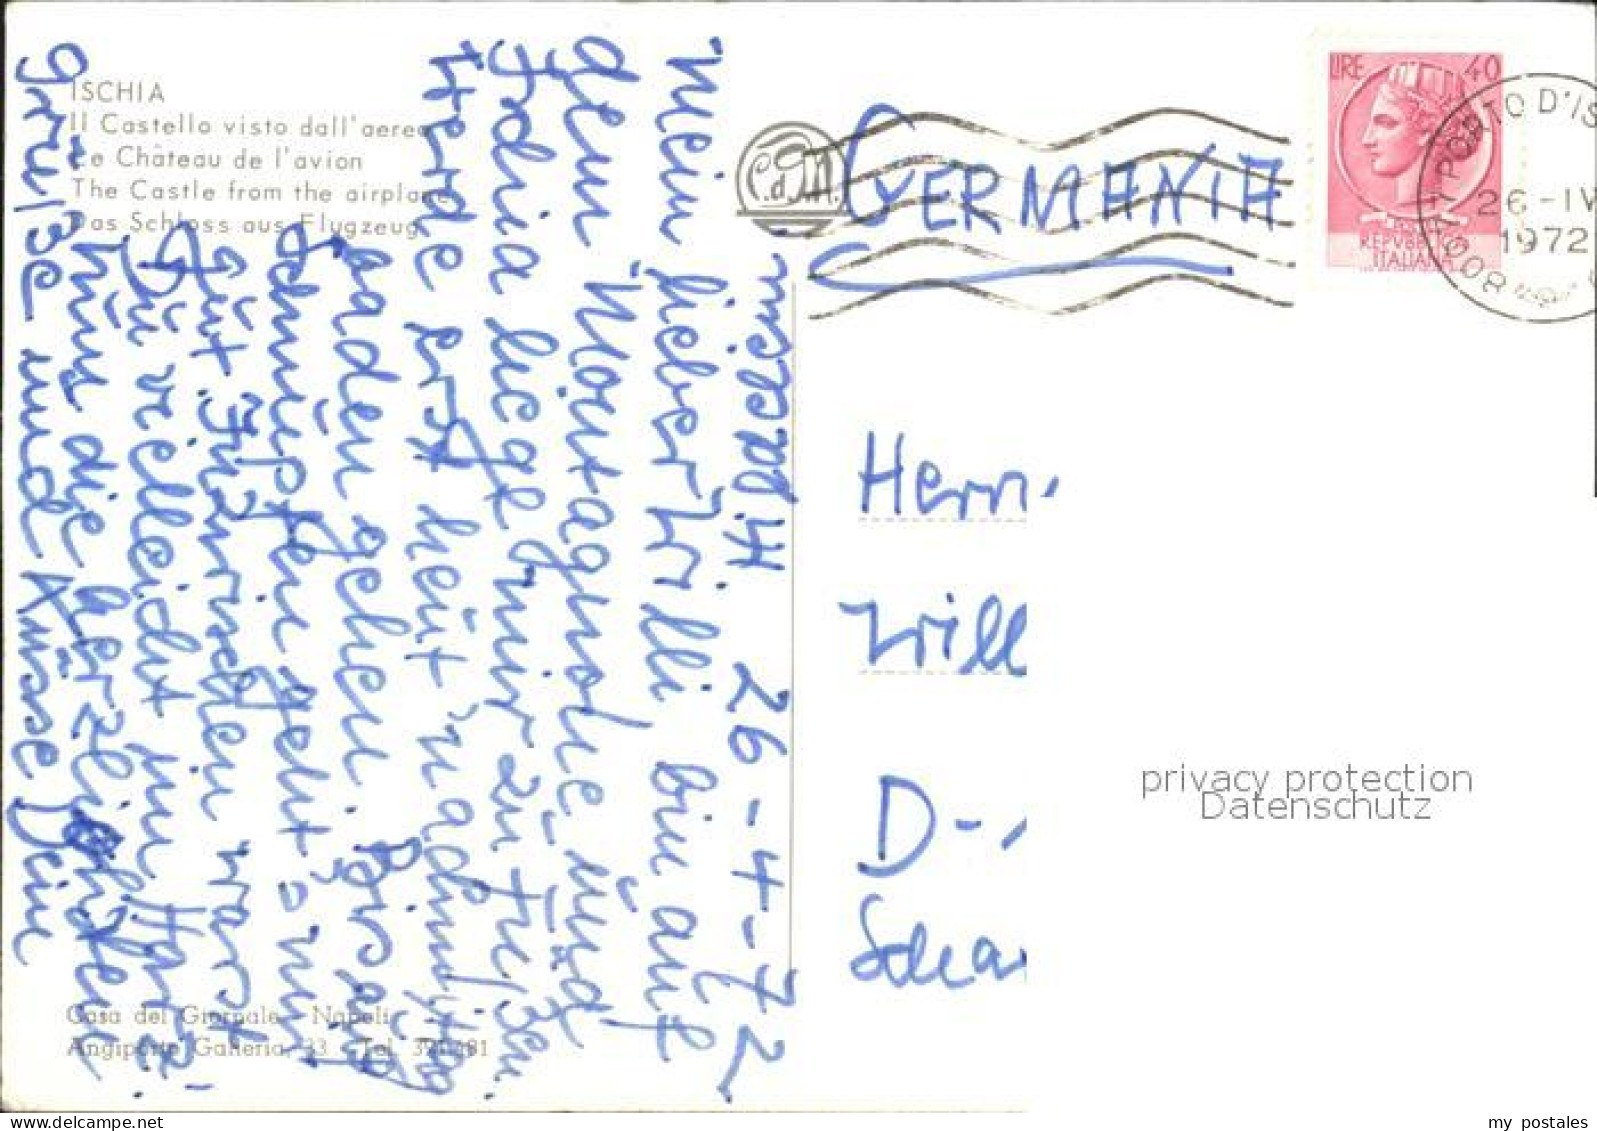 ISCHIA
Il Castello visto dall'aereo
Le Château de l'avion
The Castle from the airplane
Das Schloss aus Flugzeug
26-4-72
Mein lieber Willi, bin auf
dem Montagnone und
Idria liege mir zu Füßen.
Werde erst heut' nachmittag
baden gehen.
Schnupfen geht's nun
gut. Inzwischen warst
Du vielleicht im Harz.
Nun die herzlichsten
Grüße und Küsse Deine
Casa del Giornale - Napoli
Angiporto Galleria, 33 - Tel. 391481
C.d.M.
GERMANIA
LIRE 40
REPVBBLICA
ITALIANA
80077 PORTO D'IS
26-IV
1972
Herrn
Will
D-
Schar
privacy protection
Datenschutz
my postales